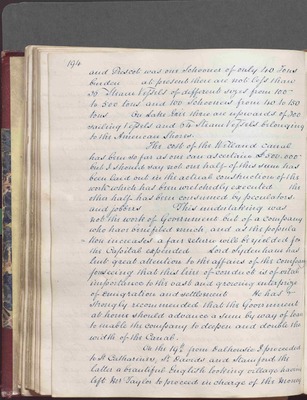 194
and Prescot was one Schooner of only 40 Tons
burden at present there are not less than
Steam Vessels of different sizes from 100
to 500 tons and 100 Schooners from 40 to 150
tons On Lake Erie there are upwards of 300
sailing Vessels and 54 Steam Vessels belonging
to the American Shores.
The cost of the Welland Canal
has been so far as one can ascertain £500.000
but I should say not one half of this sum has
been laid out in the actual construction of the
work which has been wretchedly executed the
other half has been consumed by speculators
and jobbers This undertaking was
not the work of Government but of a company
who have benefited much, and as the popula
tion increases a fair return will be yielded for
the Capital expended Lord Sydenham has
lent great attention to the affairs of the company
foreseeing that this line of conduct is of vital
importance to the vast and growing enterprize
of emigration and settlement He has
strongly recommended that the Government
at home should advance a sum by way of loan
to enable the company to deepen and double the
width of the Canal.
On the 19th from Dalhousie I proceeded
to St Catharines, St Davids and Stamford the
latter a beautiful English looking village having
left Mr Taylor to proceed in charge of the money